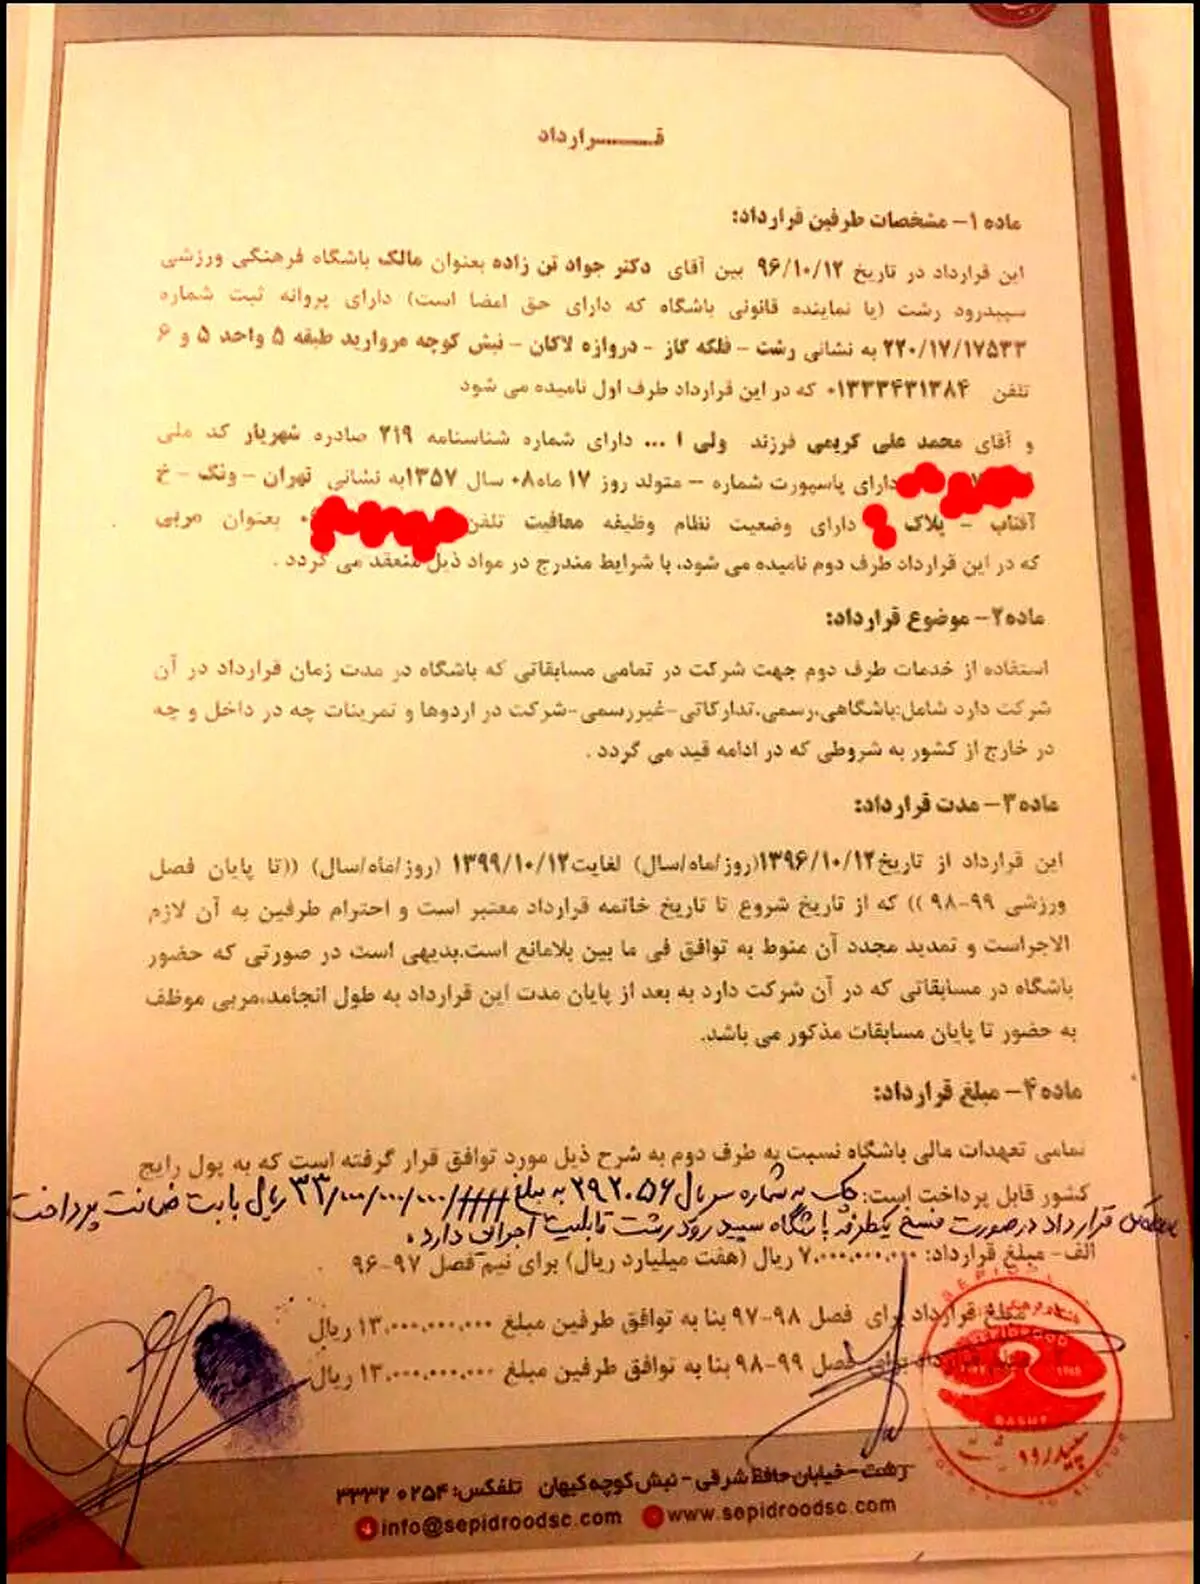 قـــــرارداد
ماده ۱- مشخصات طرفین قرارداد:
این قرارداد در تاریخ ۹۶/۱۰/۱۲ بین آقای دکتر جواد تن زاده بعنوان مالک باشگاه فرهنگی ورزشی
سپیدرود رشت (یا نماینده قانونی باشگاه که دارای حق امضا است) دارای پروانه ثبت شماره
۲۲۰/۱۷/۱۷۵۳۳ به نشانی رشت - فلکه گاز - دروازه لاکان - نبش کوچه مروارید طبقه ۵ واحد ۵ و ۶
تلفن ۰۱۳۳۳۴۳۱۳۸۴ که در این قرارداد طرف اول نامیده می شود
و آقای محمد علی کریمی فرزند ولی ا ... دارای شماره شناسنامه ۲۱۹ صادره شهریار کد ملی
دارای پاسپورت شماره - متولد روز ۱۷ ماه ۰۸ سال ۱۳۵۷به نشانی تهران - ونک - خ
آفتاب - پلاک دارای وضعیت نظام وظیفه معافیت تلفن بعنوان مربی
که در این قرارداد طرف دوم نامیده می شود، با شرایط مندرج در مواد ذیل منعقد می گردد .
ماده۲- موضوع قرارداد:
استفاده از خدمات طرف دوم جهت شرکت در تمامی مسابقاتی که باشگاه در مدت زمان قرارداد در آن
شرکت دارد شامل:باشگاهی،رسمی،تدارکاتی-غیررسمی-شرکت در اردوها و تمرینات چه در داخل و چه
در خارج از کشور به شروطی که در ادامه قید می گردد .
ماده۳- مدت قرارداد:
این قرارداد از تاریخ۱۳۹۶/۱۰/۱۲(روز/ماه/سال) لغایت۱۳۹۹/۱۰/۱۲ (روز/ماه/سال) ((تا پایان فصل
ورزشی ۹۹-۹۸ )) که از تاریخ شروع تا تاریخ خاتمه قرارداد معتبر است و احترام طرفین به آن لازم
الاجراست و تمدید مجدد آن منوط به توافق فی ما بین بلامانع است.بدیهی است در صورتی که حضور
باشگاه در مسابقاتی که در آن شرکت دارد به بعد از پایان مدت این قرارداد به طول انجامد،مربی موظف
به حضور تا پایان مسابقات مذکور می باشد.
ماده۴- مبلغ قرارداد:
تمامی تعهدات مالی باشگاه نسبت به طرف دوم به شرح ذیل مورد توافق قرار گرفته است که به پول رایج
کشور قابل پرداخت است: چک به شماره سریال ۲۹۲۰۵۶ به مبلغ ۳۳/۰۰۰/۰۰۰/۰۰۰ ریال بابت ضمانت پرداخت
قرارداد در صورت فسخ یکطرفه باشگاه سپیدرود رشت قابلیت اجرایی دارد.
الف- مبلغ قرارداد: ۷.۰۰۰.۰۰۰.۰۰۰ ریال (هفت میلیارد ریال) برای نیم فصل ۹۷-۹۶
مبلغ قرارداد برای فصل ۹۸-۹۷ بنا به توافق طرفین مبلغ ۱۳.۰۰۰.۰۰۰.۰۰۰ ریال
مبلغ قرارداد برای فصل ۹۹-۹۸ بنا به توافق طرفین مبلغ ۱۳.۰۰۰.۰۰۰.۰۰۰ ریال
SEPIDROOD
RASHT
رشت-خیابان حافظ شرقی - نبش کوچه کیهان تلفکس: ۳۳۳۲۰۲۵۴
info@sepidroodsc.com www.sepidroodsc.com